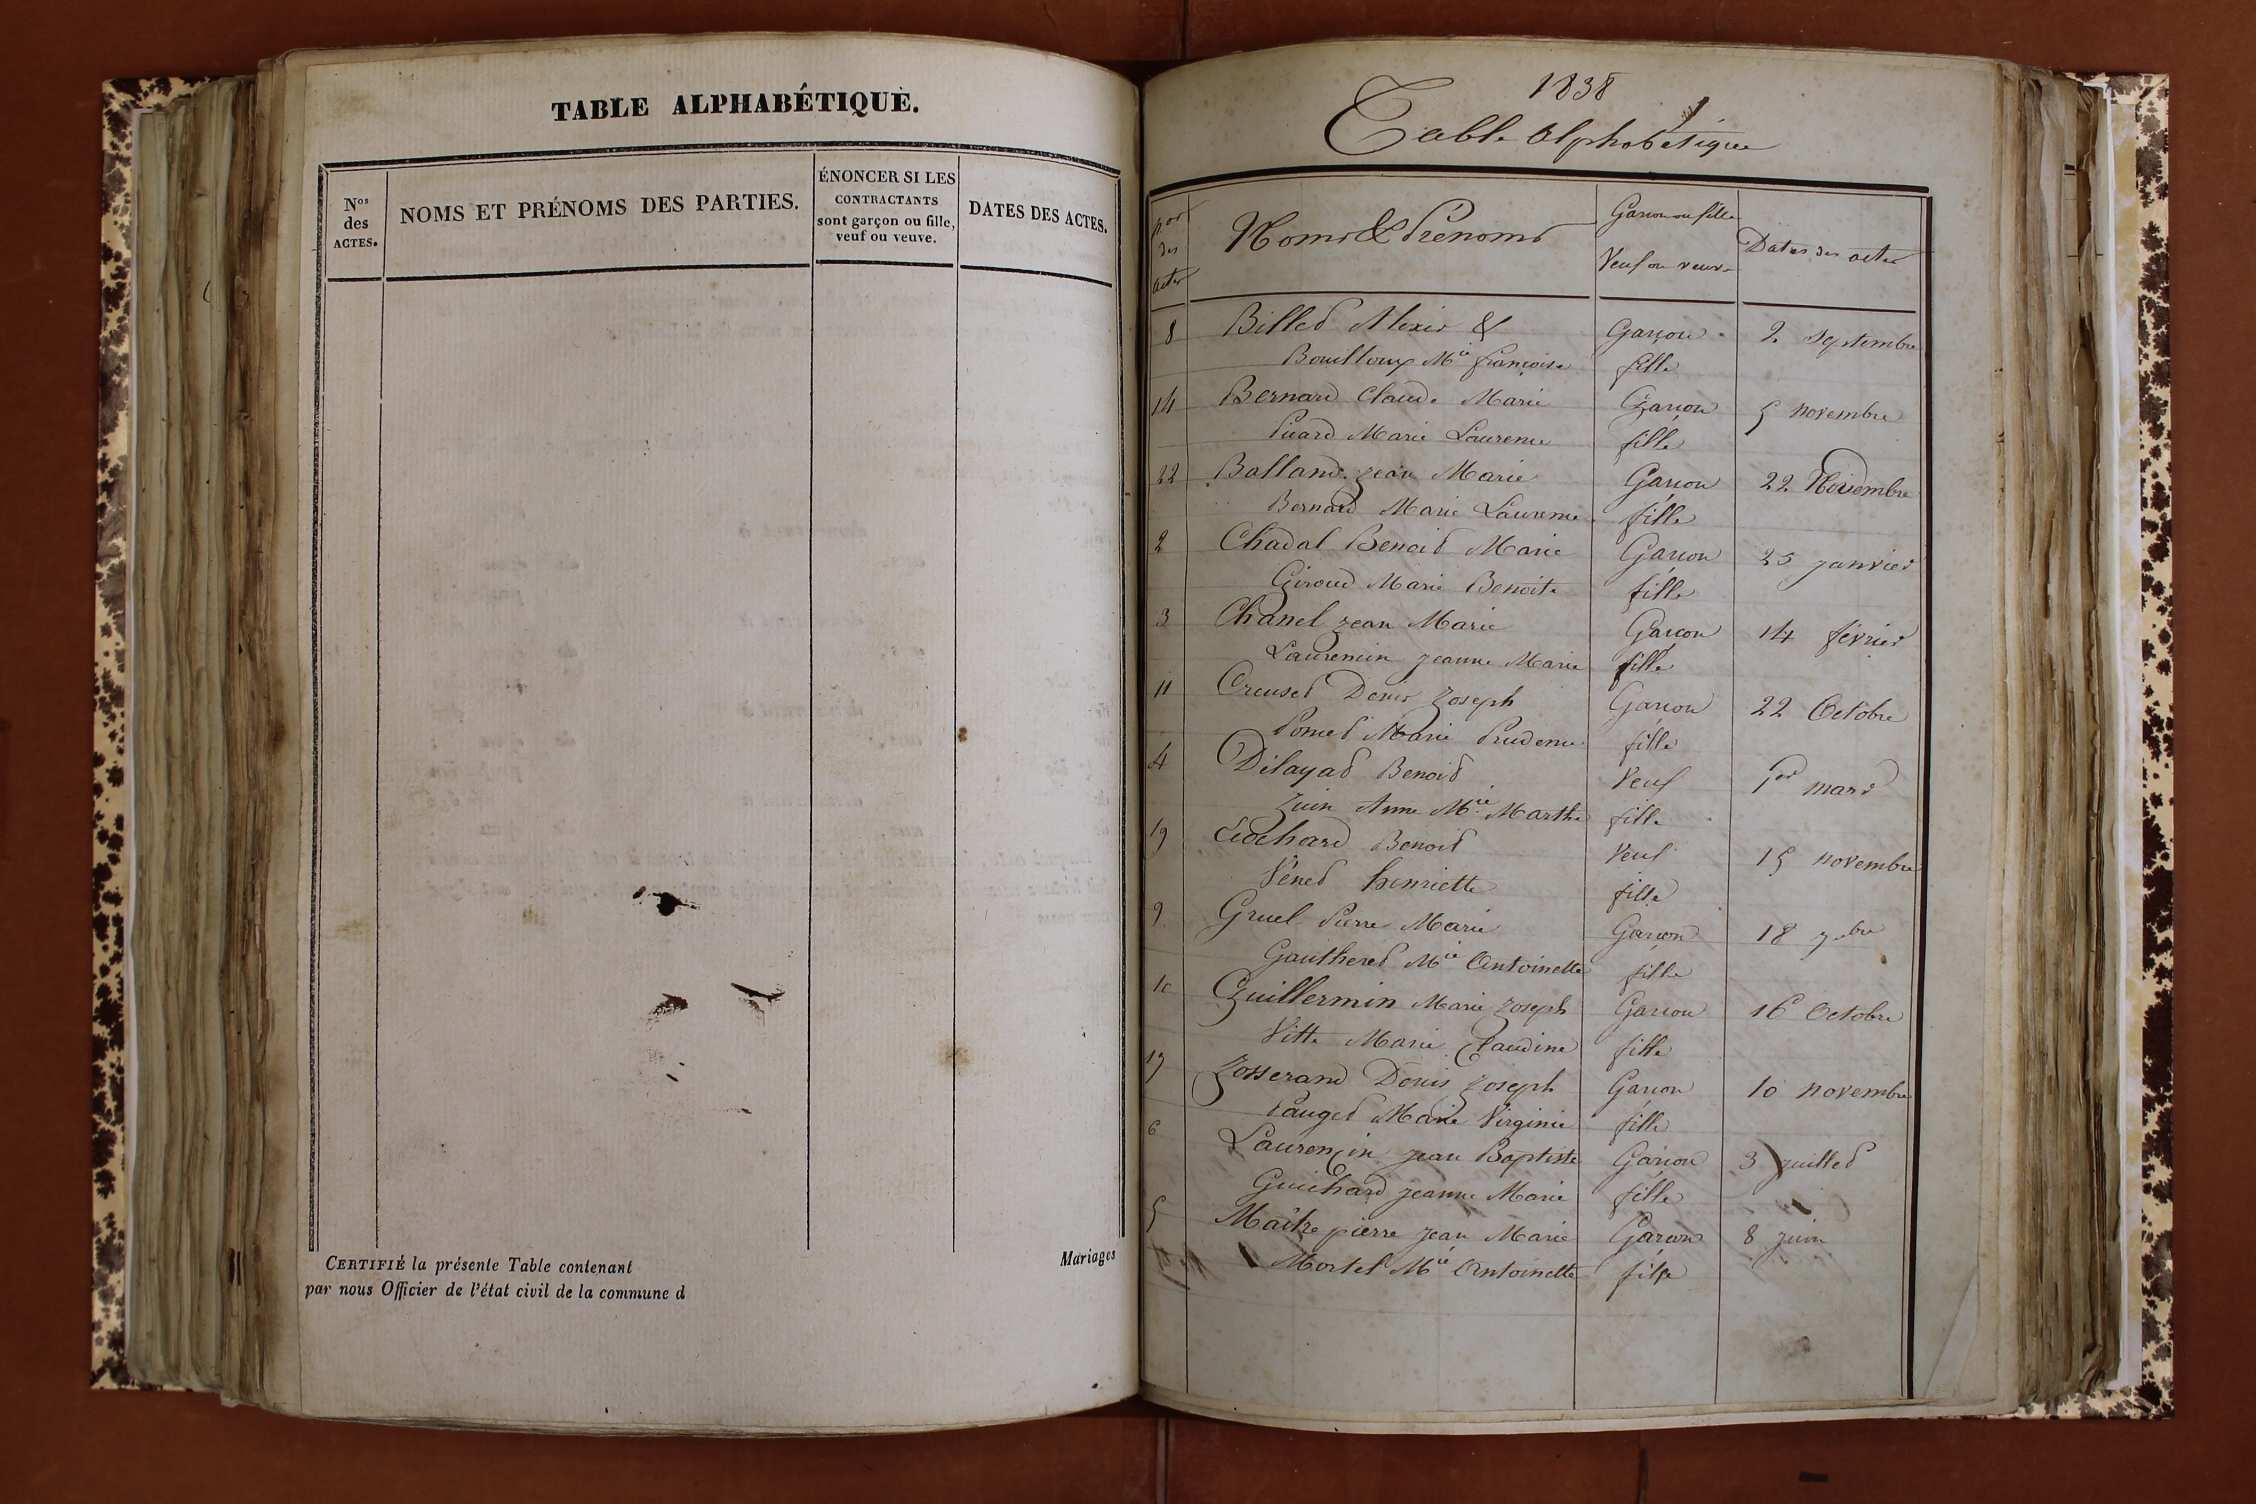 TABLE ALPHABÉTIQUE.
Nos des ACTES.
NOMS ET PRÉNOMS DES PARTIES.
ÉNONCER SI LES CONTRACTANTS sont garçon ou fille, veuf ou veuve.
DATES DES ACTES.
CERTIFIÉ la présente Table contenant Mariages
par nous Officier de l'état civil de la commune d
1838
Table Alphabétique
Nos des actes
Noms & Prenoms
Garcon ou fille
Veuf ou veuve
Dates des actes
8 Billet Alexis & Garçon 2 septembre
Bouilloux Mie françoise fille
14 Bernard Claude Marie Garcon 5 novembre
Picard Marie Laurence fille
22 Balland jean Marie Garcon 22 Novembre
Bernard Marie Laurence fille
2 Chadal Benoit Marie Garcon 25 janvier
Giroud Marie Benoite fille
3 Chanel jean Marie Garcon 14 février
Laurencin jeanne Marie fille
11 Creuset Denis Joseph Garcon 22 Octobre
Pomet Marie Prudence fille
4 Dilayat Benoit Veuf 1er mars
Juin Anne Mie Marthe fille
19 Benoit Veuf 15 novembre
Vénet henriette fille
9 Gruel Pierre Marie Garcon 18 7bre
Gautheret Mie Antoinette fille
10 Guillermin Marie Joseph Garcon 16 Octobre
Vitte Marie Claudine fille
17 Josserand Denis Joseph Garcon 10 novembre
Pauget Marie Virginie fille
6 Laurençin jean Baptiste Garcon 3 juillet
Guichard jeanne Marie fille
5 Maître pierre jean Marie Garcon 8 juin
Mortel Mie Antoinette fille